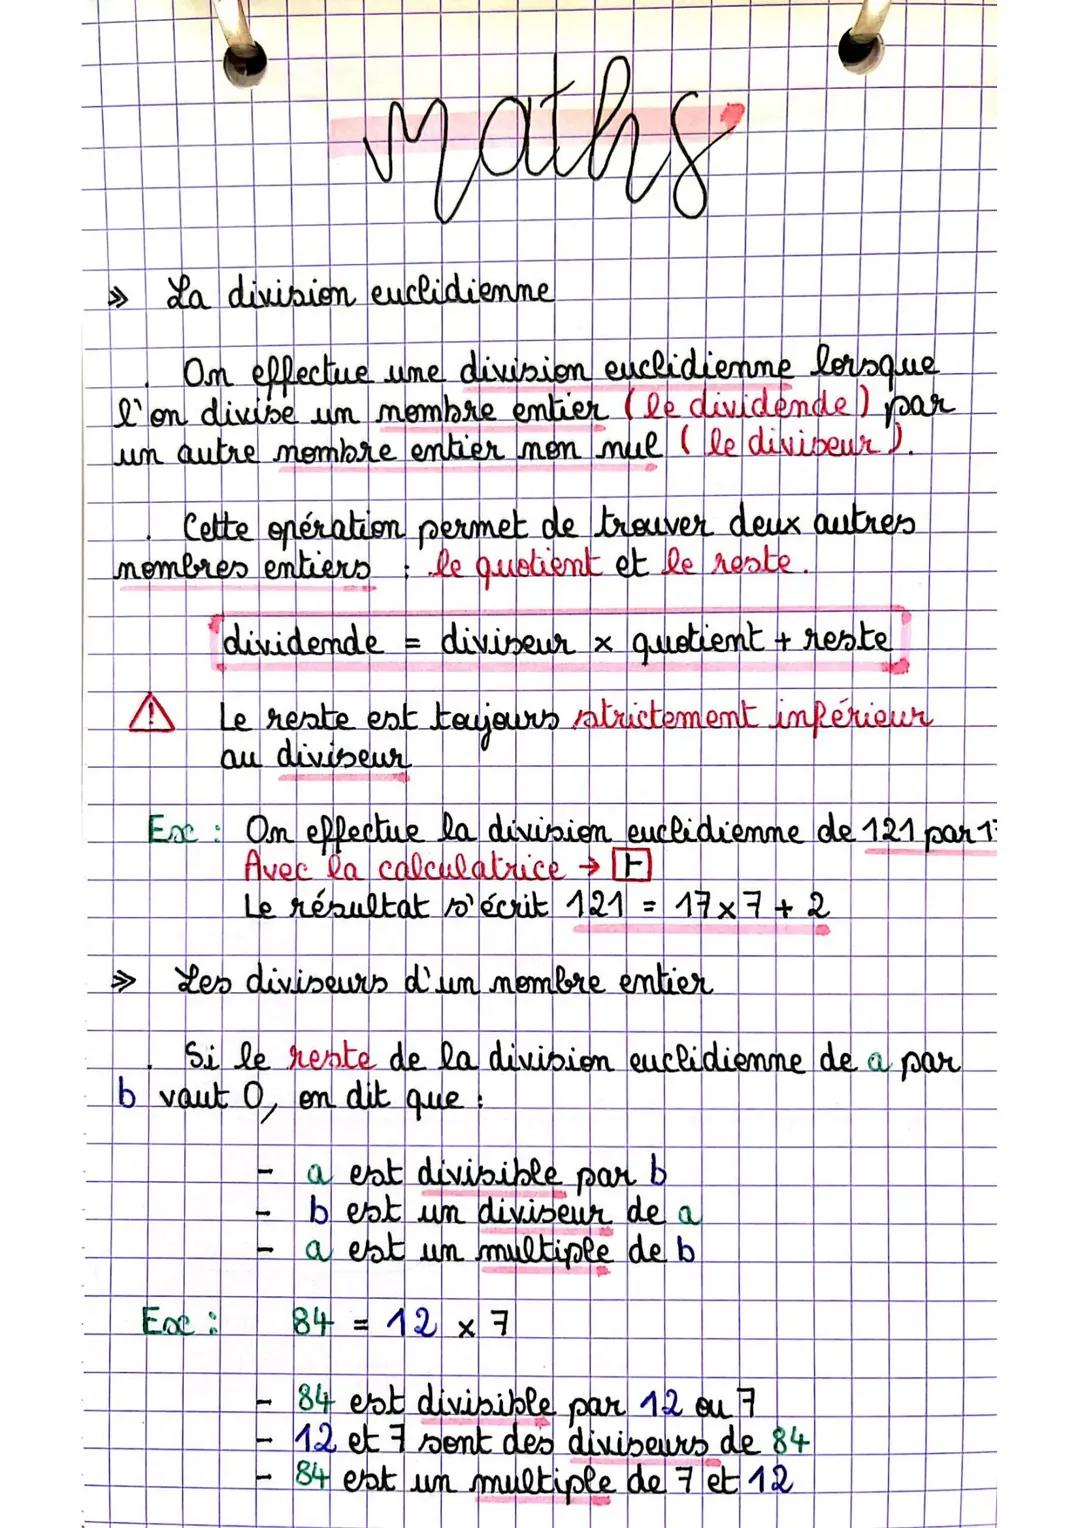 maths
» La division euclidienne
. On effectue une division euclidienne lorsque
l'on divise un nombre entier (le dividende) par
un autre nombre entier non nul (le diviseur).
. Cette opération permet de trouver deux autres
nombres entiers : le quotient et le reste.
dividende = diviseur x quotient + reste
⚠ Le reste est toujours strictement inférieur
au diviseur
Ex : On effectue la division euclidienne de 121 par
Avec la calculatrice → ⊢
Le résultat s'écrit 121 = 17 x 7 + 2
» Les diviseurs d'un nombre entier
. Si le reste de la division euclidienne de a par
b vaut 0, on dit que :
- a est divisible par b
- b est un diviseur de a
- a est un multiple de b
Ex : 84 = 12 x 7
- 84 est divisible par 12 ou 7
- 12 et 7 sont des diviseurs de 84
- 84 est un multiple de 7 et 12